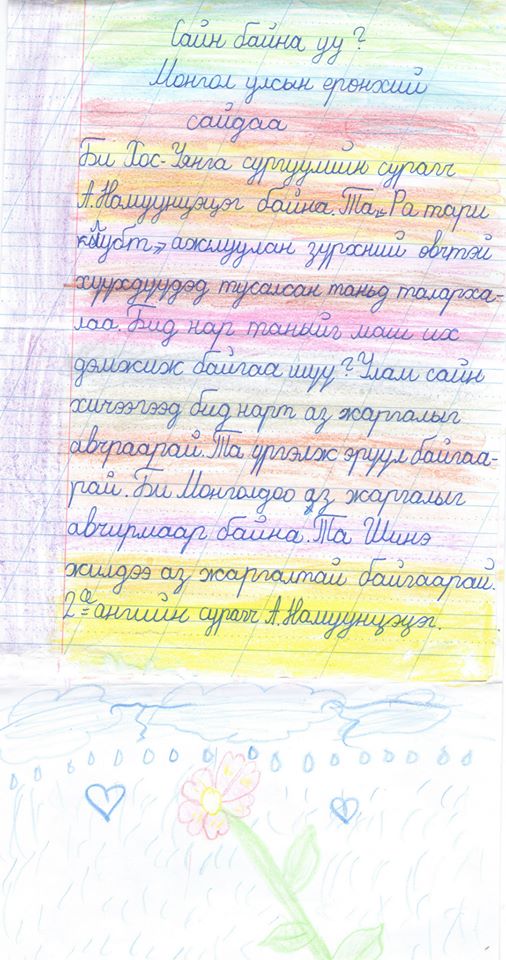 Сайн байна уу?
Монгол улсын ерөнхий
сайдаа
Би Хос-Уянга сургуулийн сурагч
А.Намуунцэцэг байна. Та "Ра тари
клубт" ажлуулан зүрхний өвчтэй
хүүхдүүдэд тусалсан таньд таларха-
лаа. Бид нар таныйг маш их
дэмжиж байгаа шүү? Улам сайн
хичээгээд бид нарт аз жаргалыг
авчраарай. Та үргэлж эрүүл байгаа-
рай. Би Монголдоо аз жаргалыг
авчирмаар байна. Та Шинэ
жилдээ аз жаргалтай байгаарай.
2 ангийн сурагч А.Намуунцэцэг.